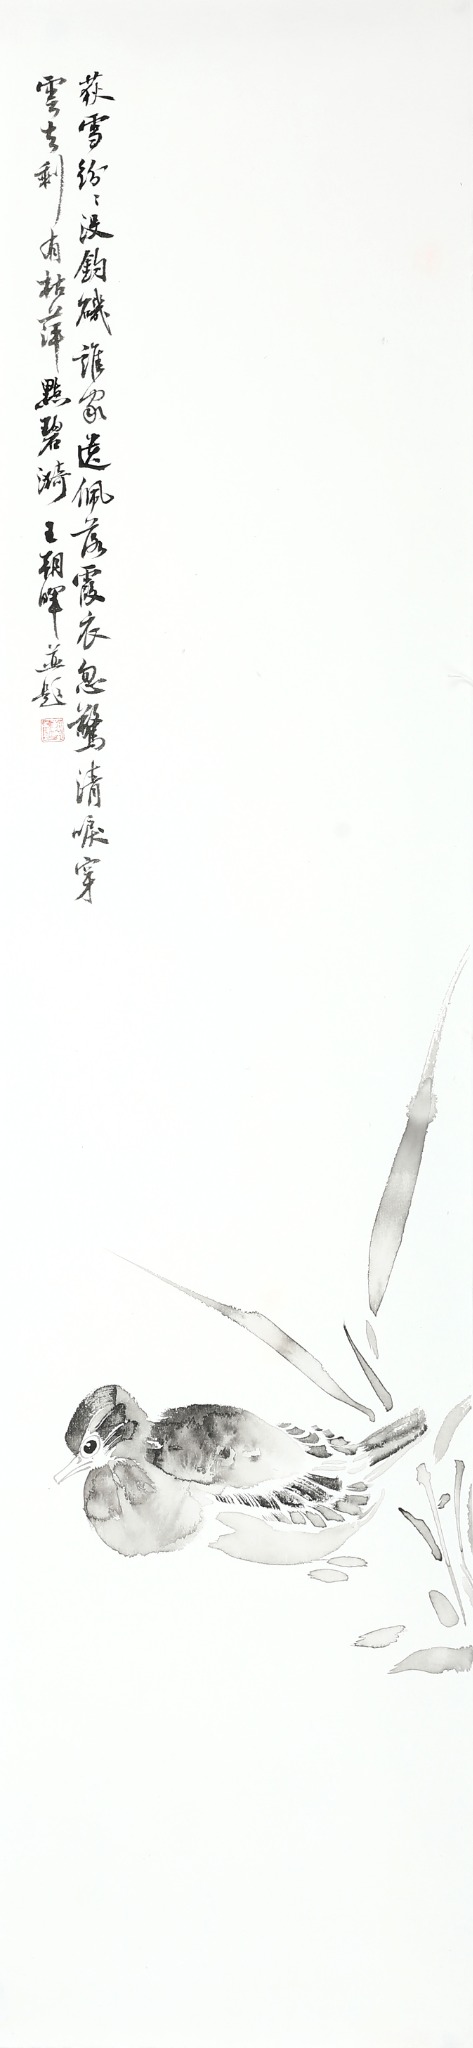 荻雪紛〻沒釣磯誰家遺佩落霞衣忽驚清唳穿
雲去剩有枯萍點碧漪王朝暉並題